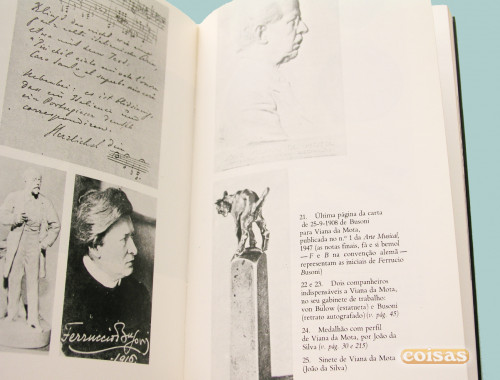 Klingt das nicht
Nebenbei: es ist
dass ein Italiener und
ein Portugiese deutsch
correspondiren.
Herzlichst Dein
Ferruccio Busoni
1916
21. Última página da carta
de 25-9-1908 de Busoni
para Viana da Mota,
publicada no n.º 1 da Arte Musical,
1947 (as notas finais, fá e si bemol
— F e B na convenção alemã —
representam as iniciais de Ferrucio
Busoni)
22 e 23. Dois companheiros
indispensáveis a Viana da Mota,
no seu gabinete de trabalho:
von Bülow (estatueta) e Busoni
(retrato autografado) (v. pág. 45)
24. Medalhão com perfil
de Viana da Mota, por João da
Silva (v. pág. 30 e 215)
25. Sinete de Viana da Mota
(João da Silva)
coisas